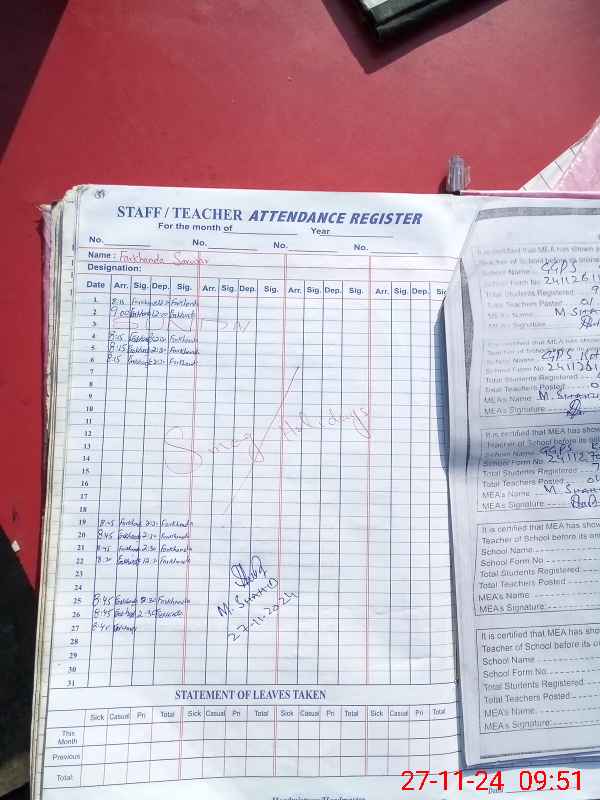 STAFF / TEACHER ATTENDANCE REGISTER
For the month of Year
No. No. No. No.
Name: Farkhanda Sarwar
Designation:
Date Arr. Sig. Dep. Sig. Arr. Sig. Dep. Sig. Arr. Sig. Dep. Sig. Arr. Sig. Dep. Si
1 8:15 Farkhanda Farkhanda
2 9:00 Farkhanda 12:00 Farkhanda
3 SUNDAY
4 8:15 Farkhanda Farkhanda
5 8:15 Farkhanda 2:30 Farkhanda
6 8:15 Farkhanda Farkhanda
7
8
9
10
11
12
13
14
Smog Holidays
15
16
17
18
19 8:45 Farkhanda 2:30 Farkhanda
20 8:45 Farkhanda 2:30 Farkhanda
21 8:45 Farkhanda 2:30 Farkhanda
22 8:30 Farkhanda 12:30 Farkhanda
23
24
25 8:45 Farkhanda 2:30 Farkhanda
26 8:45 Farkhanda 2:30 Farkhanda
27 8:45 Farkhanda
M. SHAHID
27-11-2024
28
29
30
31
STATEMENT OF LEAVES TAKEN
Sick Casual Pri Total Sick Casual Pri Total Sick Casual Pri Total Sick Casual Pri Total
This Month
Previous
Total:
It is certified that MEA has shown
Teacher of School before its
School Name GGPS
School Form No
Total Students Registered
Total Teachers Posted
MEA's Name M. SHA
MEA's Signature
It is certified that MEA has show
Teacher of School before its
School Name GGPS
School Form No
Total Students Registered
Total Teachers Posted
MEA's Name M. SHAH
MEA's Signature
It is certified that MEA has show
Teacher of School before its
School Name GGPS
School Form No 241127
Total Students Registered
Total Teachers Posted
MEA's Name M. SHAH
MEA's Signature
It is certified that MEA has show
Teacher of School before its on
School Name
School Form No.
Total Students Registered
Total Teachers Posted
MEA's Name
MEA's Signature
It is certified that MEA has sho
Teacher of School before its o
School Name
School Form No.
Total Students Registered
Total Teachers Posted
MEA's Name
MEA's Signature:
Date
Headmistress/Headmaster
27-11-24 09:51